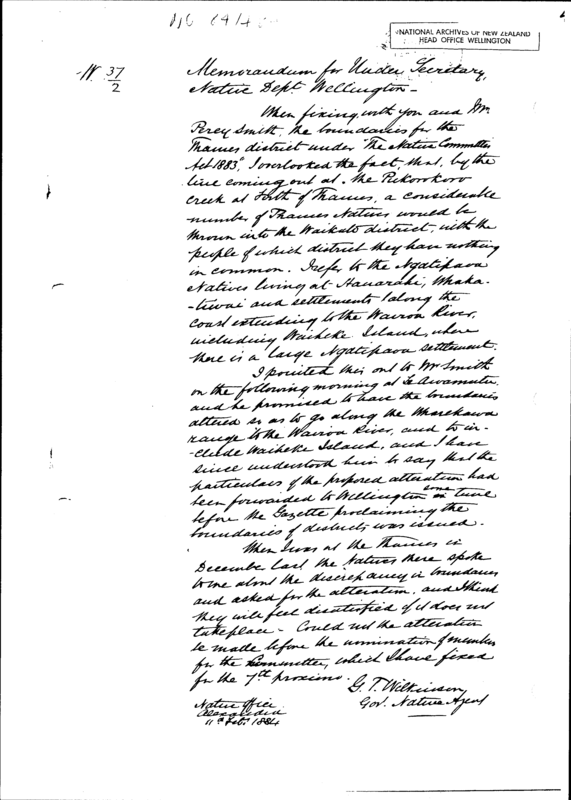 NATIONAL ARCHIVES OF NEW ZEALAND
HEAD OFFICE WELLINGTON
37
2
Memorandum for Under Secretary,
Native Dept. Wellington -
When fixing, with you and Mr
Percy Smith, the boundaries for the
Thames district under "The Native Committees
Act 1883", I overlooked the fact, that, by the
line coming out at the Pukorokoro
creek at Firth of Thames, a considerable
number of Thames Natives would be
thrown into the Waikato district, with the
people of which district they have nothing
in common. I refer to the Ngatipaoa
Natives living at Hauarahi, Whaka-
-tiwai and settlements along the
coast extending to the Wairoa River,
including Waiheke Island, where
there is a large Ngatipaoa settlement.
I pointed this out to Mr Smith
on the following morning at Te Awamutu
and he promised to have the boundaries
altered so as to go along the Wharekawa
range to the Wairoa River, and to in-
-clude Waiheke Island, and I have
since understood him to say that the
particulars of the proposed alteration had
been forwarded to Wellington some time
before the Gazette proclaiming the
boundaries of districts was issued.
When I was at the Thames in
December last the Natives there spoke
to me about the discrepancy in boundaries
and asked for the alteration, and I think
they will feel dissatisfied if it does not
take place - Could not the alteration
be made before the nomination of members
for the Committee, which I have fixed
for the 7th proximo.
G. T. Wilkinson
Gov. Native Agent
Native Office
Alexandra
11th Feb. 1884